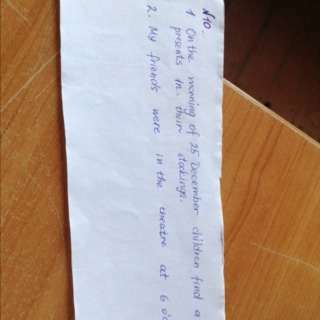 №10.
1. On the morning of 25 December children find a
presents in their stockings.
2. My friends were in the theatre at 6